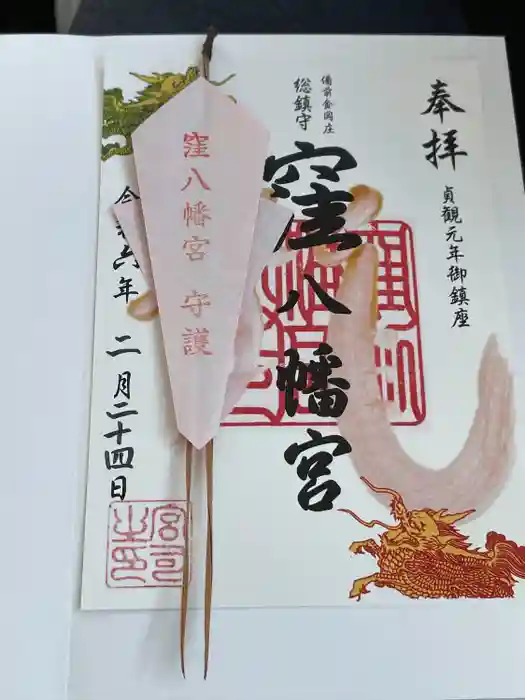 奉拝
貞観元年御鎮座
備前金岡庄
総鎮守
窪八幡宮
窪八幡宮 守護
令和六年
二月二十四日